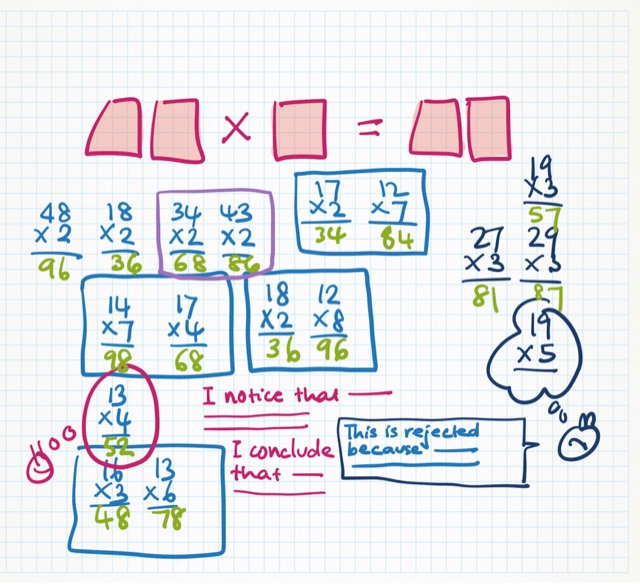 × =
48 18 34 43
×2 ×2 ×2 ×2
96 36 68 86
17 12
×2 ×7
34 84
19
×3
57
27 29
×3 ×3
81 87
14 17
×7 ×4
98 68
18 12
×2 ×8
36 96
19
×5
13
×4
52
I notice that
I conclude
that
This is rejected
because
16 13
×3 ×6
48 78